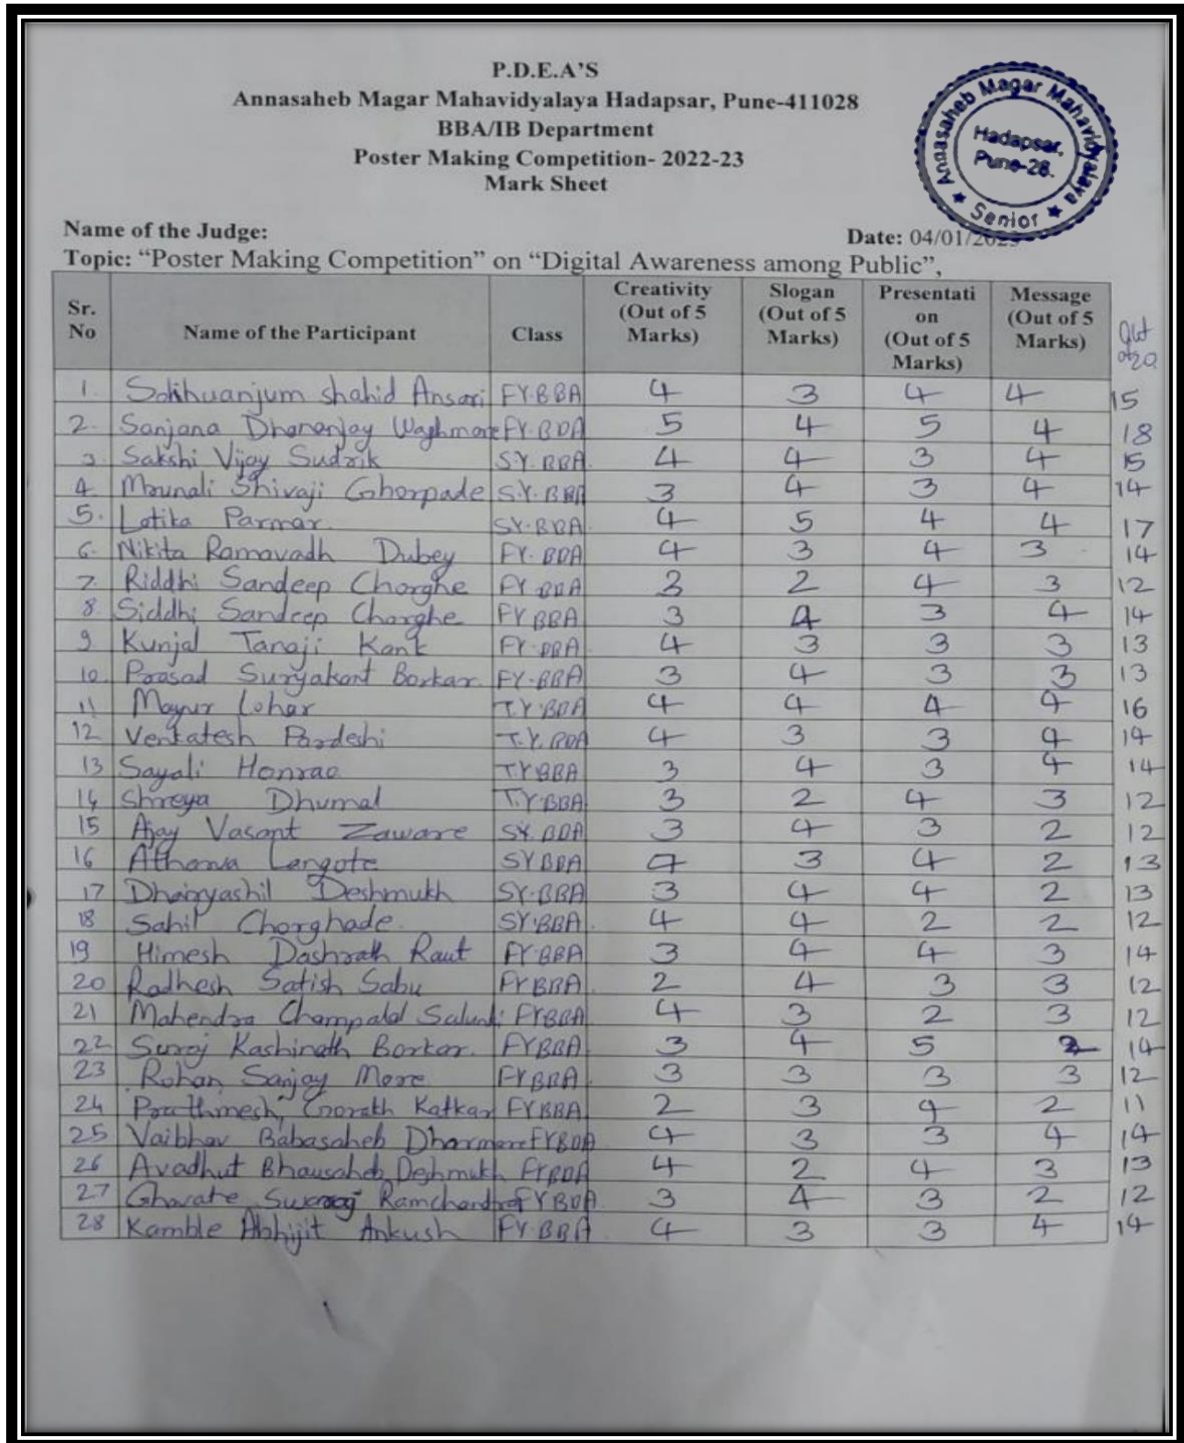 P.D.E.A'S
Annasaheb Magar Mahavidyalaya Hadapsar, Pune-411028
BBA/IB Department
Poster Making Competition- 2022-23
Mark Sheet
Annasaheb Magar Mahavidyalaya
Hadapsar,
Pune-28.
★ Senior ★
Name of the Judge:
Date: 04/01/2023
Topic: “Poster Making Competition” on “Digital Awareness among Public”,
Sr. No Name of the Participant Class Creativity (Out of 5 Marks) Slogan (Out of 5 Marks) Presentati on (Out of 5 Marks) Message (Out of 5 Marks) Out of 20
1. shahid Ansari FY.BBA 4 3 4 4 15
2. Sanjana Dhananjay Waghmare FY.BBA 5 4 5 4 18
3. Sakshi Vijay Sudrik SY.BBA. 4 4 3 4 15
4. Mrunali Shivaji Ghorpade SY.BBA 3 4 3 4 14
5. Latika Parmar SY.BBA. 4 5 4 4 17
6. Nikita Ramavadh Dubey FY.BBA 4 3 4 3 14
7 Riddhi Sandeep Chorghe FY BBA 3 2 4 3 12
8. Siddhi Sandeep Chorghe FY BBA 3 4 3 4 14
9 Kunjal Tanaji Kank FY.BBA 4 3 3 3 13
10. Prasad Suryakant Borkar. FY.BBA 3 4 3 3 13
11 Mayur Lohar T.Y.BBA 4 4 4 4 16
12 Venkatesh Pardeshi T.Y.BBA 4 3 3 4 14
13 Sayali Honrao T.Y BBA 3 4 3 4 14
14 Shreya Dhumal T.Y BBA 3 2 4 3 12
15 Ajay Vasant Zaware SY.BBA 3 4 3 2 12
16 Atharva Langote SY BBA 4 3 4 2 13
17 Dhairyashil Deshmukh SY.BBA 3 4 4 2 13
18 Sahil Chorghade. SY.BBA 4 4 2 2 12
19 Himesh Dashrath Raut FY.BBA 3 4 4 3 14
20 Radhesh Satish Sabu FY BBA 2 4 3 3 12
21 Mahendra Champalal FYBBA 4 3 2 3 12
22 Suraj Kashinath Borkar. FYBBA 3 4 5 2 14
23 Rohan Sanjay More FYBBA 3 3 3 3 12
24 Prathmesh Gorakh Katkar FYBBA 2 3 4 2 11
25 Vaibhav Babasaheb Dharmare FYBBA 4 3 3 4 14
26 Avadhut Bhausaheb Deshmukh FYBBA 4 2 4 3 13
27 Gharate Swaraj Ramchandra FYBBA. 3 4 3 2 12
28 Kamble Abhijit Ankush FY BBA 4 3 3 4 14